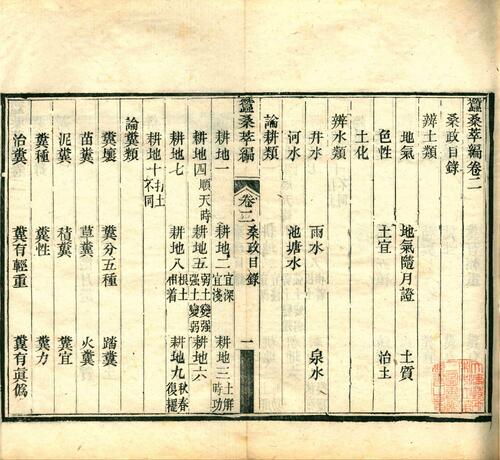 蠶桑萃編卷二
桑政目錄
辨土類
地氣 地氣隨月證 土質
色性 土宜 治土
土化
辨水類
井水 雨水 泉水
河水 池塘水
論耕類
蠶桑萃編 卷二 桑政目錄 一
耕地一 耕地二宜深宜淺 耕地三土解時功
耕地四順天時 耕地五弱土變强强土變弱 耕地六
耕地七 耕地八根土相着 耕地九秋春復耰
耕地十打土不同
論糞類
糞壤 糞分五種 踏糞
苗糞 草糞 火糞
泥糞 積糞 糞宜
糞種 糞性 糞力
治糞 糞有輕重 糞有眞僞